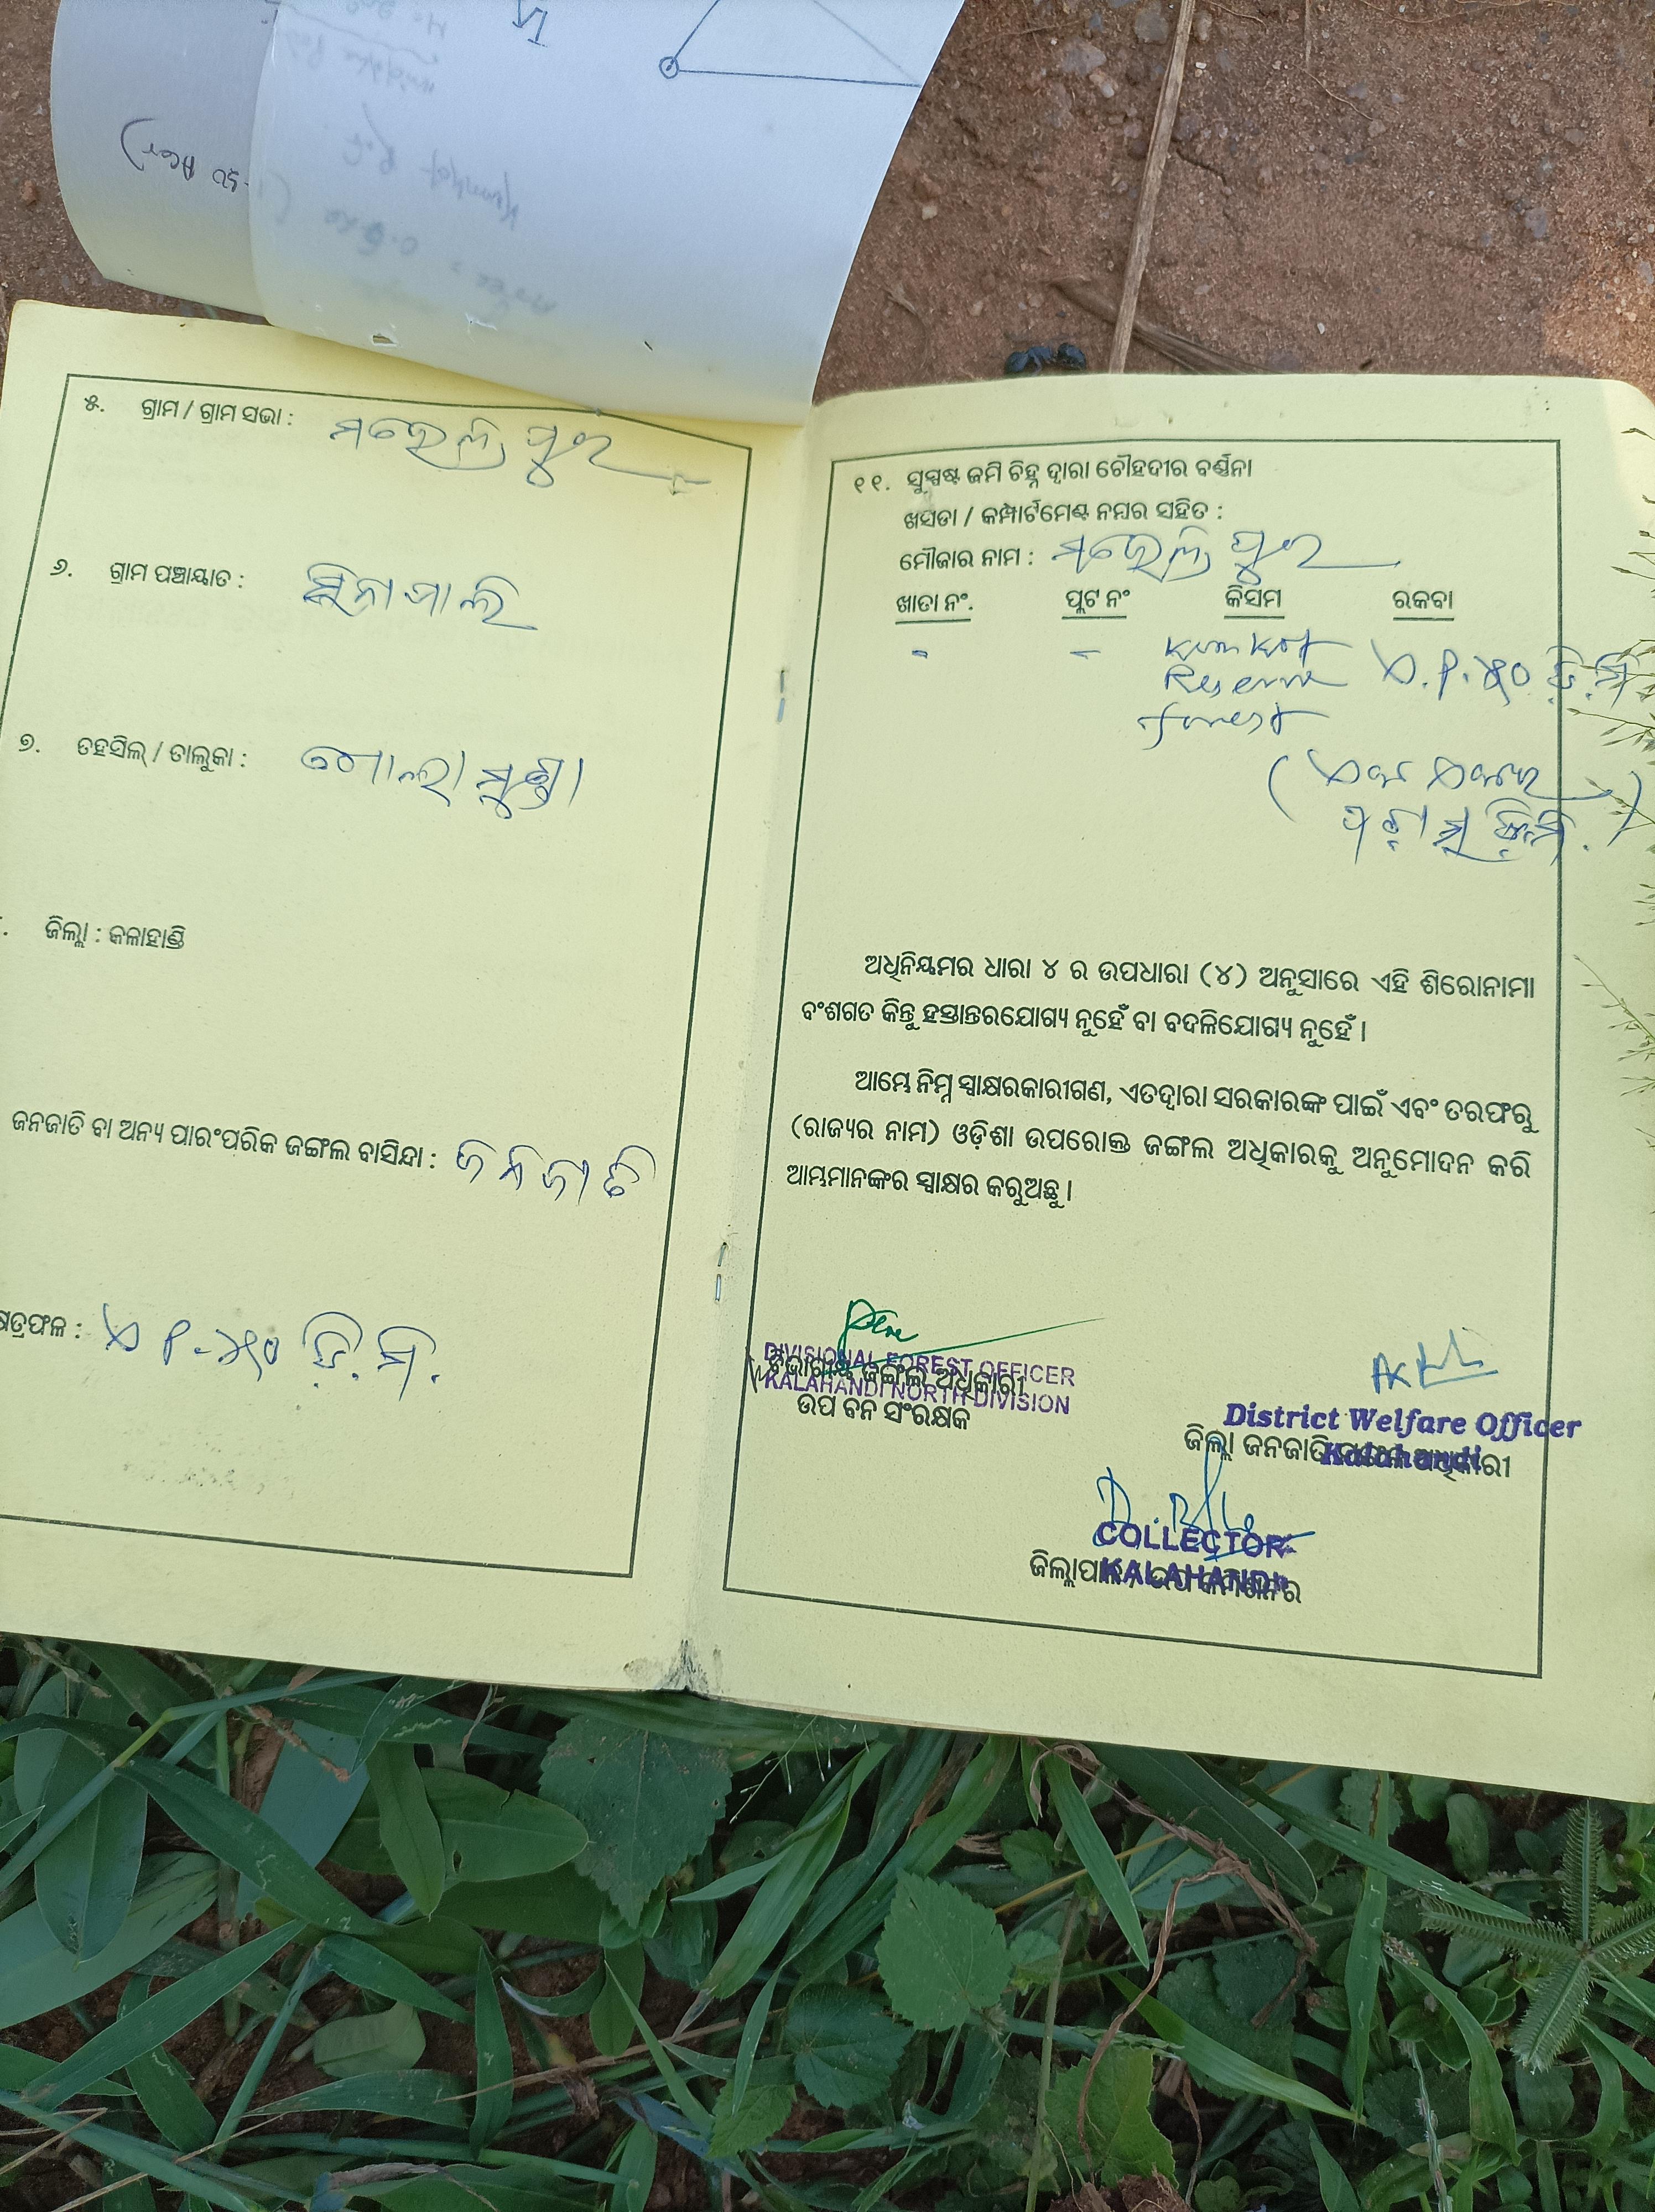 ୫. ଗ୍ରାମ / ଗ୍ରାମ ସଭା : ମହେଲପୁର
୬. ଗ୍ରାମ ପଞ୍ଚାୟାତ : ସିନାପାଲି
୭. ତହସିଲ୍ / ତାଲୁକା : ଗୋଲାମୁଣ୍ଡା
ଜିଲ୍ଲା : କଳାହାଣ୍ଡି
ଜନଜାତି ବା ଅନ୍ୟ ପାରଂପରିକ ଜଙ୍ଗଲ ବାସିନ୍ଦା : ଜନଜାତି
ଏ ୧.୫୦ ଡ଼ି.ମି.
୧୧. ସୁସ୍ପଷ୍ଟ ଜମି ଚିହ୍ନ ଦ୍ୱାରା ଚୌହଦୀର ବର୍ଣ୍ଣନା
ଖସଡା / କମ୍ପାର୍ଟମେଣ୍ଟ ନମ୍ବର ସହିତ :
ମୌଜାର ନାମ : ମହେଲପୁର
ଖାତା ନଂ. ପ୍ଲଟ ନଂ କିସମ ରକବା
- - Kumkot ଏ.୧.୫୦ ଡ଼ି.ମି
Reserve
forest
(ଏକ ଏକର
ପଚାଶ ଡ଼ି.ମି.)
ଅଧିନିୟମର ଧାରା ୪ ର ଉପଧାରା (୪) ଅନୁସାରେ ଏହି ଶିରୋନାମା
ବଂଶଗତ କିନ୍ତୁ ହସ୍ତାନ୍ତରଯୋଗ୍ୟ ନୁହେଁ ବା ବଦଳିଯୋଗ୍ୟ ନୁହେଁ ।
ଆମ୍ଭେ ନିମ୍ନ ସ୍ୱାକ୍ଷରକାରୀଗଣ, ଏତଦ୍ୱାରା ସରକାରଙ୍କ ପାଇଁ ଏବଂ ତରଫରୁ
(ରାଜ୍ୟର ନାମ) ଓଡ଼ିଶା ଉପରୋକ୍ତ ଜଙ୍ଗଲ ଅଧିକାରକୁ ଅନୁମୋଦନ କରି
ଆମ୍ଭମାନଙ୍କର ସ୍ୱାକ୍ଷର କରୁଅଛୁ ।
DIVISIONAL FOREST OFFICER
ବିଭାଗୀୟ ଜଙ୍ଗଲ ଅଧିକାରୀ
KALAHANDI NORTH DIVISION
ଉପ ବନ ସଂରକ୍ଷକ
District Welfare Officer
ଜିଲ୍ଲା ଜନଜାତି ଅଧିକାରୀ
Kalahandi
COLLECTOR
KALAHANDI